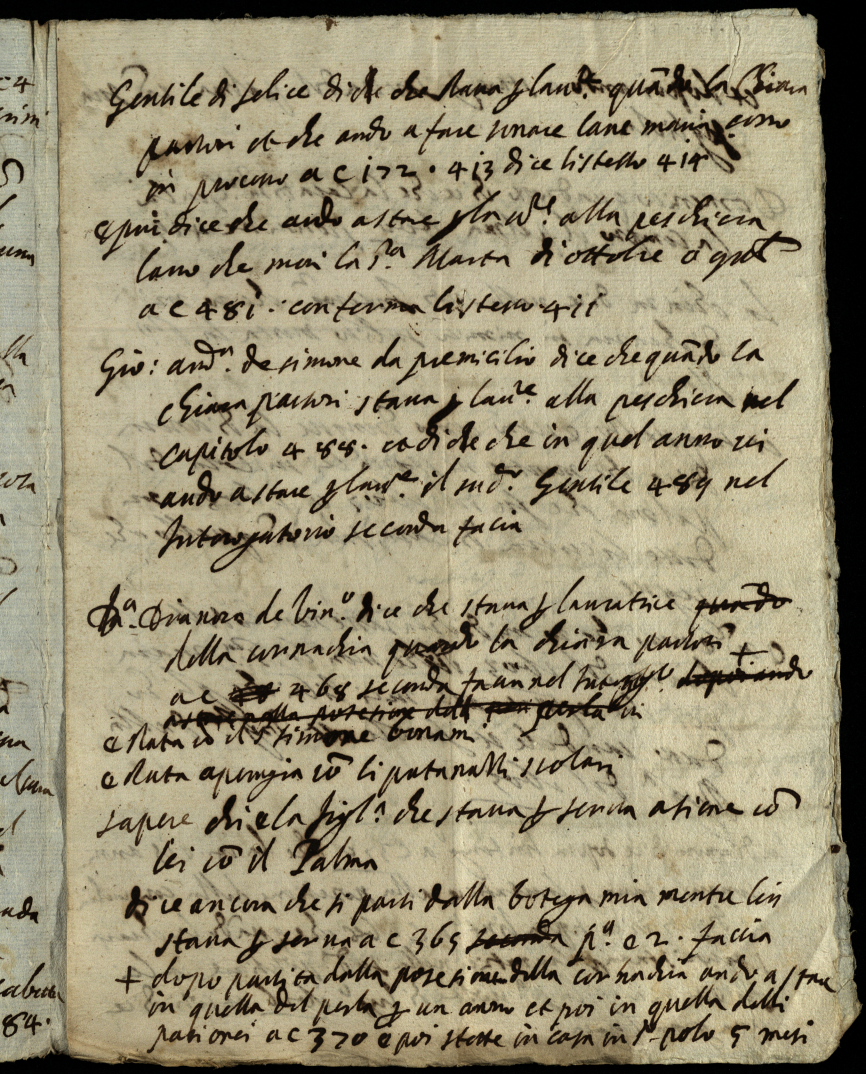 Gentile di felice dice che stava p lavre quãdo la Chiara
pastori et che ando a fare
in processo a c 172 . 413 dice listesso 414
e poi dice che ando a stare p lavre alla peschiera
lano che mori la sra Marta di ottobre o
a c 481 . conferma listesso 411
Gio: andra de simone da dice che quãdo la
chiara pastori stava p lavre alla peschiera nel
capitolo 488 . et dice che in quel anno
ando a stare p lavre il sudo Gentile 489 nel
Interogatorio seconda facia
Dianora de Vinco dice che stava p lavoratrice quãdo
della cornachia quando la chiara pastori +
a c 468 seconda nel dopoi ando
a stare nella posesione dell perla in
e stata cõ il s simone bonam
e stata apomgia cõ li scolari
sapere chi e la figla che stava p serva asieme cõ
lei cõ il Palma
dice ancora che si parti dalla botega mia mentre lei
stava p serva a c 365 seconda pa e 2 . faccia
+ dopo partita dalla posesione della cornachia ando a stare
in quella del perla p un anno et poi in quella delli
a c 370 e poi stette in casa in s polo 5 mesi